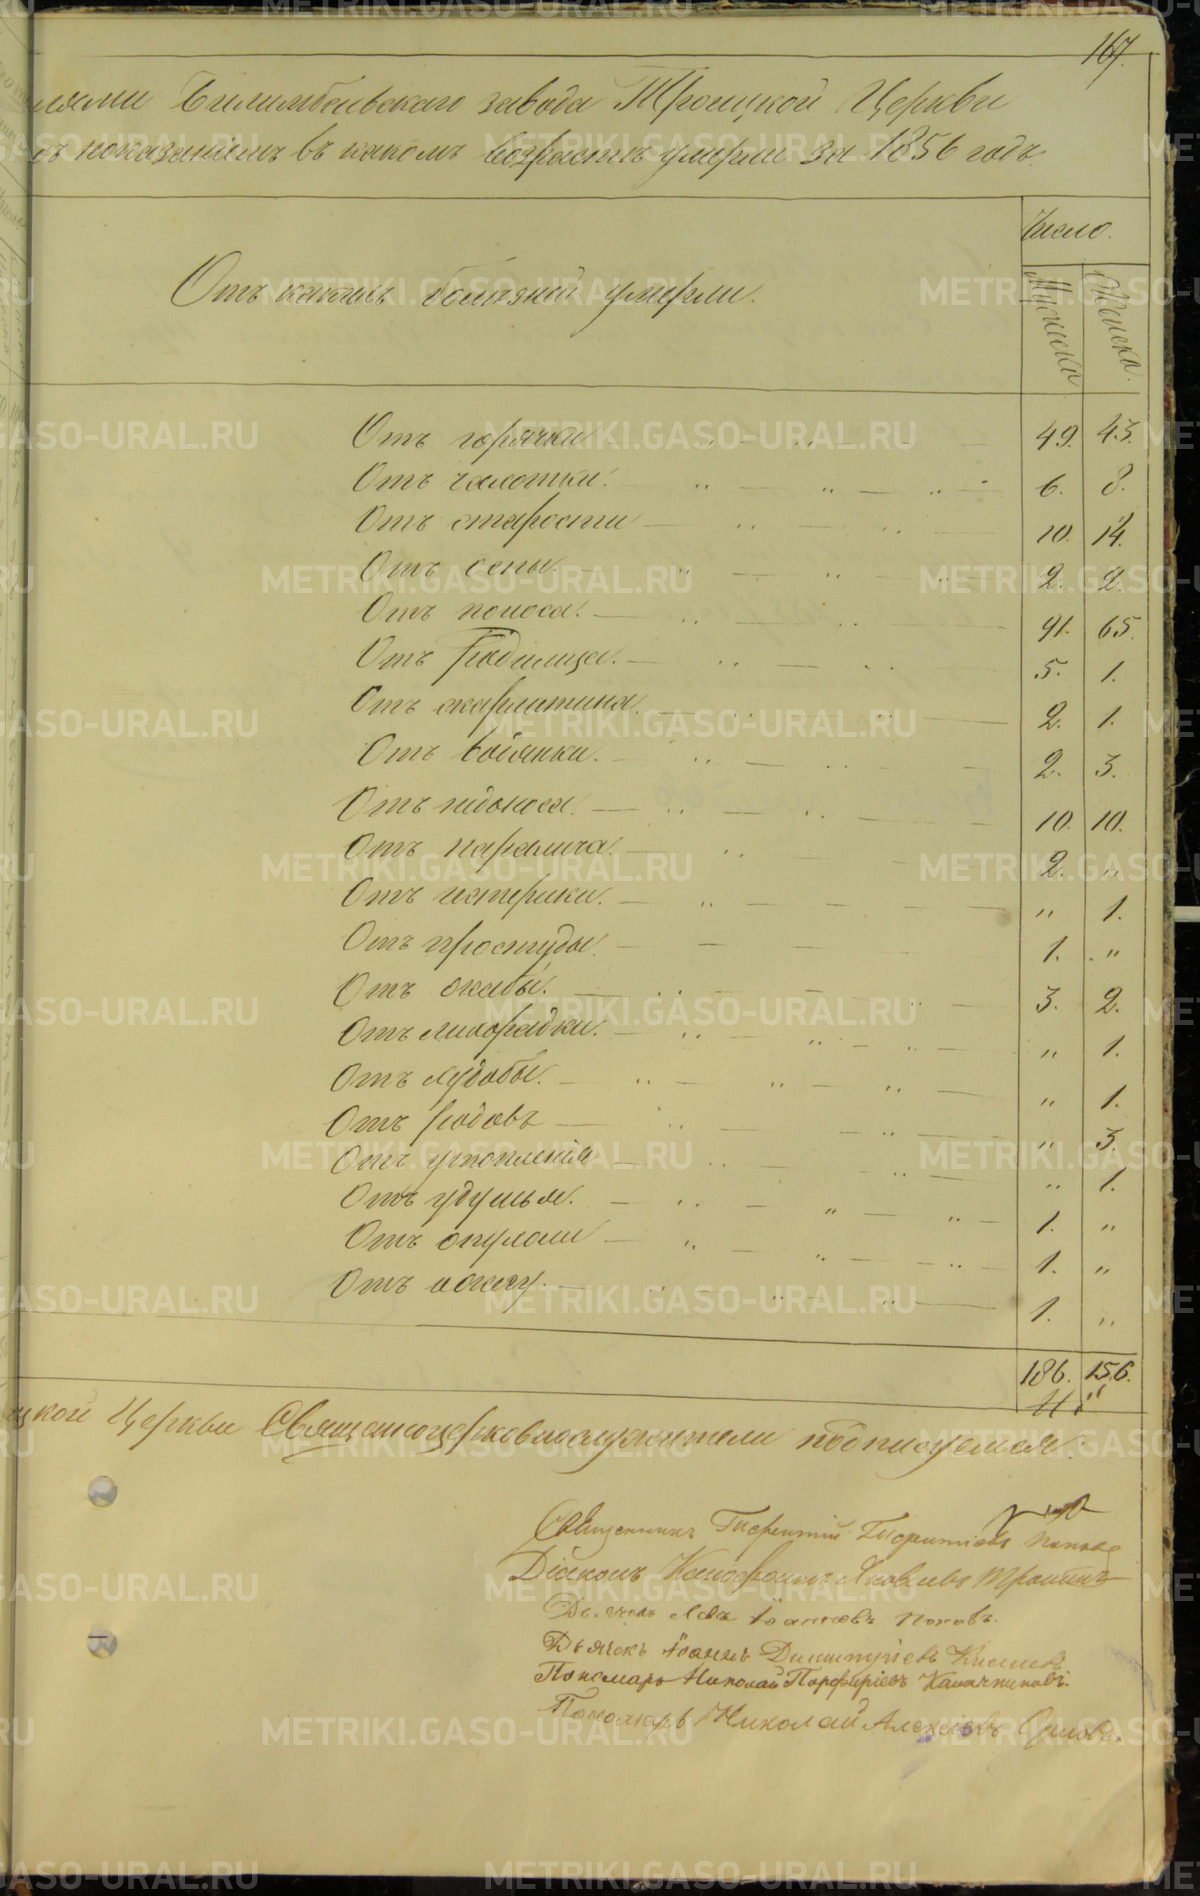 167.
лями Билимбаевскаго завода Троицкой Церкви
съ показаніемъ въ какомъ возрастѣ умерли за 1856 годъ.
Число.
Отъ какихъ болѣзней умерли.
Мужеска
Женска.
Отъ горячки 49. 43.
Отъ чахотки. 6. 8.
Отъ старости 10. 14.
Отъ оспы. 2. 2.
Отъ поноса. 91. 65.
Отъ Родимца. 5. 1.
Отъ скарлатина 2. 1.
Отъ водянки. 2. 3.
Отъ 10. 10.
Отъ паралича. 2. "
Отъ истерики. " 1.
Отъ простуды. 1. "
Отъ 3. 2.
Отъ лихорадки. " 1.
Отъ худобы. " 1.
Отъ родовъ " 3.
Отъ утопленія " 1.
Отъ удушья. 1. "
Отъ опухоли 1. "
Отъ 1. "
186. 156.
цкой Церкви Священноцерковнослужители подписуемся.
Священникъ Поповъ
Діаконъ Яковлевъ
Дьячекъ Левъ Іоанновъ Поповъ.
Дьячекъ Іоаннъ Димитріевъ
Пономарь Николай Порфиріевъ Калачниковъ.
Пономарь Николай Алексѣевъ
METRIKI.GASO-URAL.RU